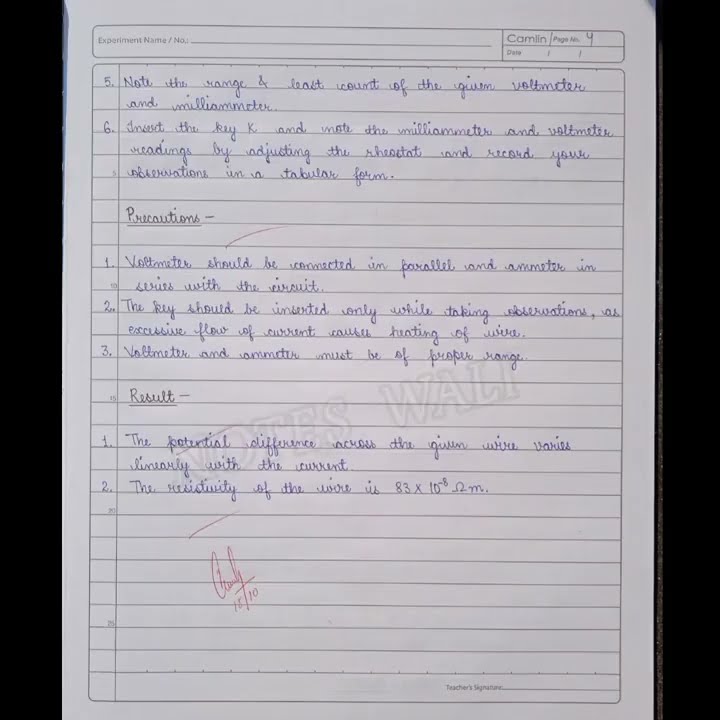 Experiment Name / No.:
Camlin Page No. 4
Date / /
5. Note the range & least count of the given voltmeter
and milliammeter.
6. Insert the key K and note the milliammeter and voltmeter
readings by adjusting the rheostat and record your
observations in a tabular form.
Precautions -
1. Voltmeter should be connected in parallel and ammeter in
series with the circuit.
2. The key should be inserted only while taking observations, as
excessive flow of current causes heating of wire.
3. Voltmeter and ammeter must be of proper range.
15 Result -
1. The potential difference across the given wire varies
linearly with the current.
2. The resistivity of the wire is 83 × 10⁻⁸ Ωm.
20
NOTES WALI
25
Teacher's Signature: